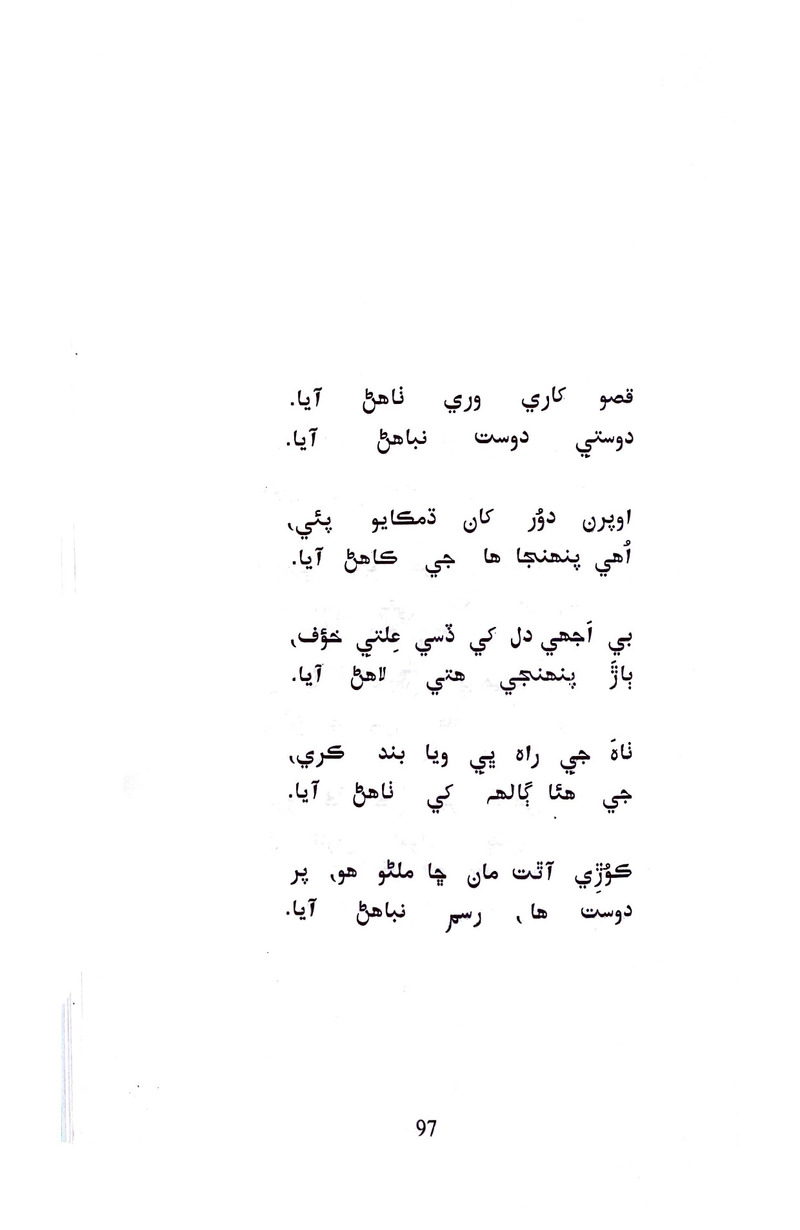 قصو ڪاري وري ٺاهڻ آيا.
دوستي دوست نباهڻ آيا.
اوپرن دوُر کان ڌمڪايو پئي،
اُهي پنهنجا ها جي ڪاهڻ آيا.
بي اَجهي دل کي ڏسي عِلتي خؤف،
ٻاڙَ پنهنجي هتي لاهڻ آيا.
ٺاهَ جي راه ڀي ويا بند ڪري،
جي هئا ڳالهه کي ٺاهڻ آيا.
ڪوُڙِي آٿت مان ڇا ملڻو هو، پر
دوست ها، رسم نباهڻ آيا.
97